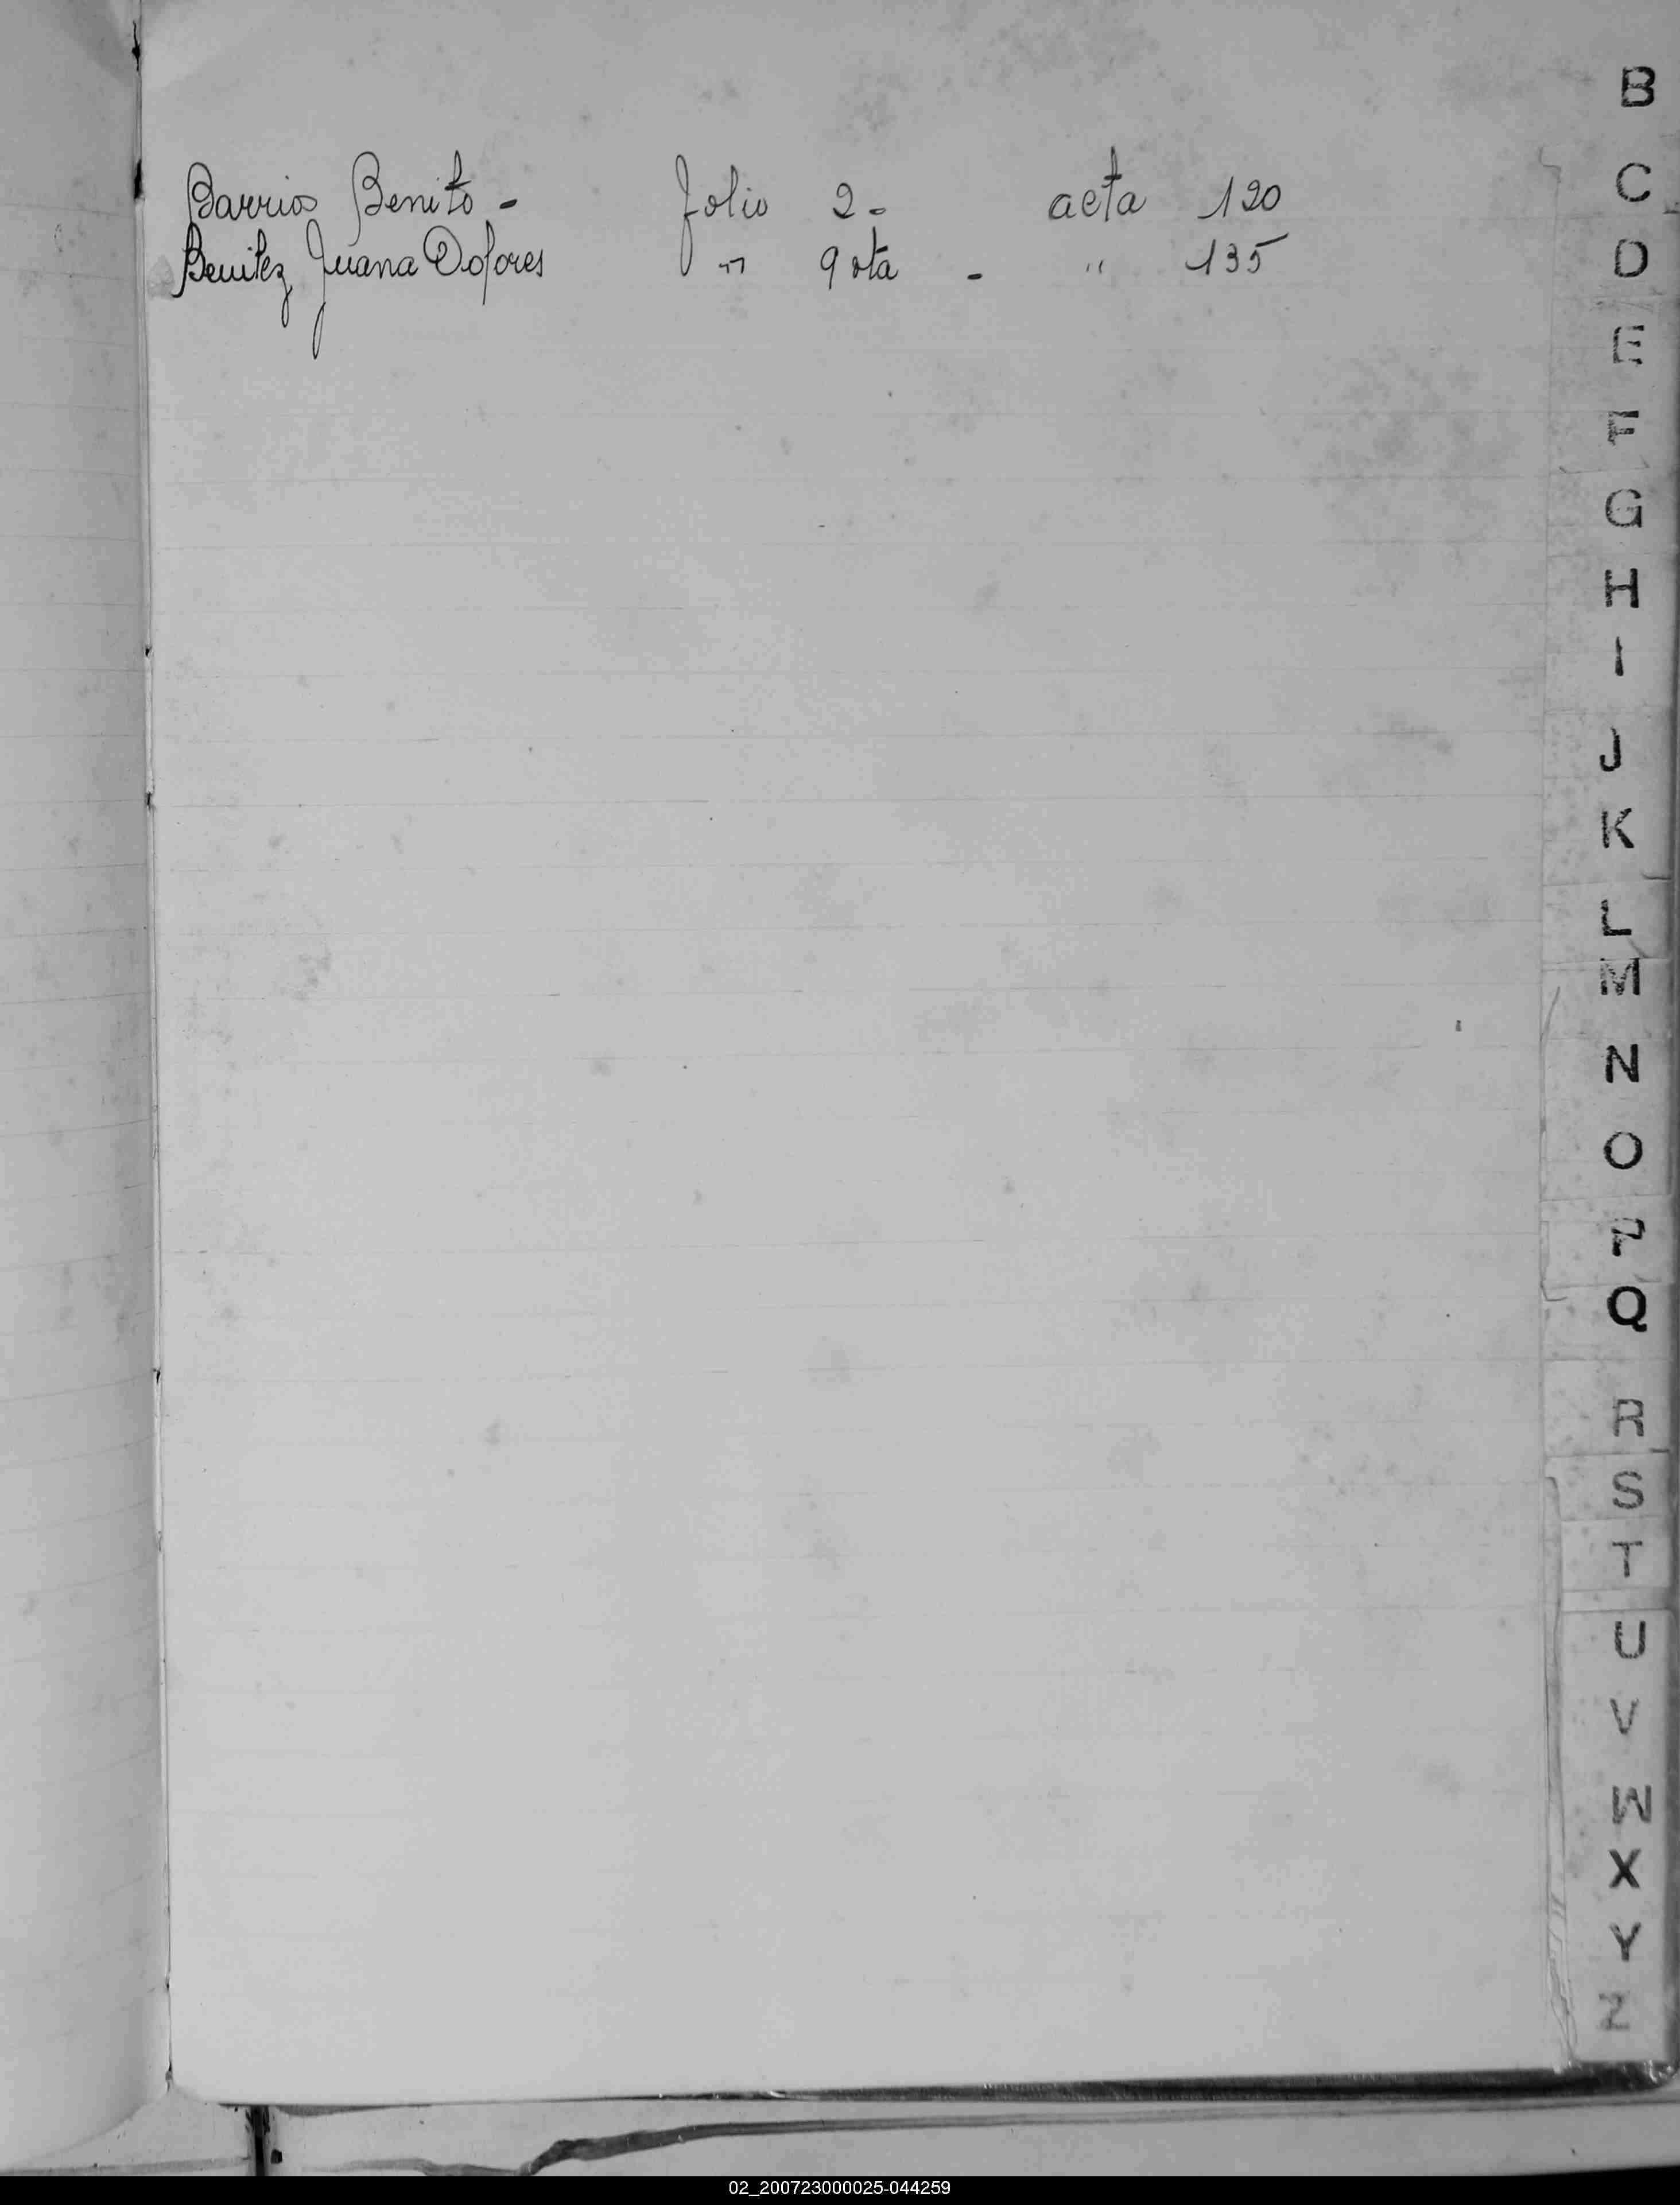 B
Barrios Benito - folio 2 - acta 120
Benitez Juana Dolores " 9 vta - " 135
C
D
E
F
G
H
I
J
K
L
M
N
O
P
Q
R
S
T
U
V
W
X
Y
Z
02_200723000025-044259